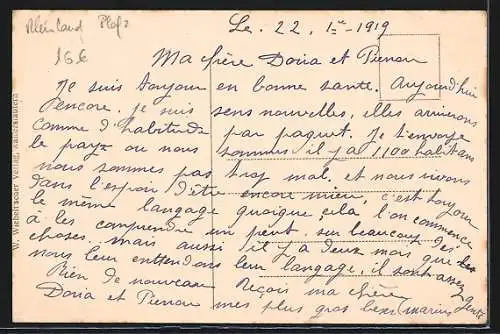 Rheinland Pfalz
166
Le. 22, 1-1919
Ma chère Doria et
Je suis toujour en bonne santé. Aujourd'hui
encore. je suis sens nouvelles, elles arrivrons
comme d'habitude par paquet. Je t'envoye
le payz ou nous sommes il y a 1100 habitans
nous sommes pas trop mal, et nous vivons
dans l'espoir d'être encore mieu, c'est toujour
le même langage quoique cela l'on commence
à les comprendre un peut. sur beaucoup des
choses, mais aussi il y a deux mois que
nous leur entendons leur langage, il sont assez gentil
Rien de nouveau Reçois ma chère
Doria et mes plus gros bexs marius
W. Wiebelsacher Verlag, Kaiserslautern